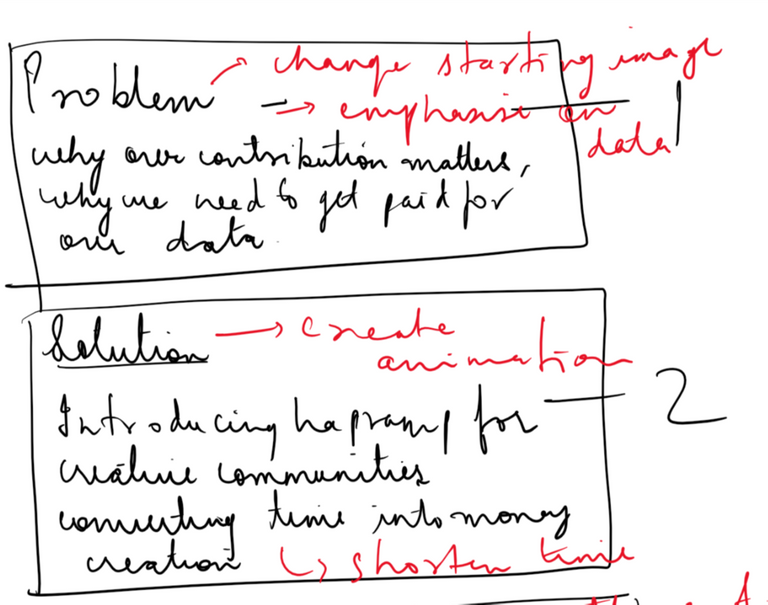 Problem → change starting image
→ emphasise on data
1
why our contribution matters,
why we need to get paid for
our data.
Solution → create
animation
2
Introducing hapramp for
creative communities
converting time into money
creation ↳ shorten time